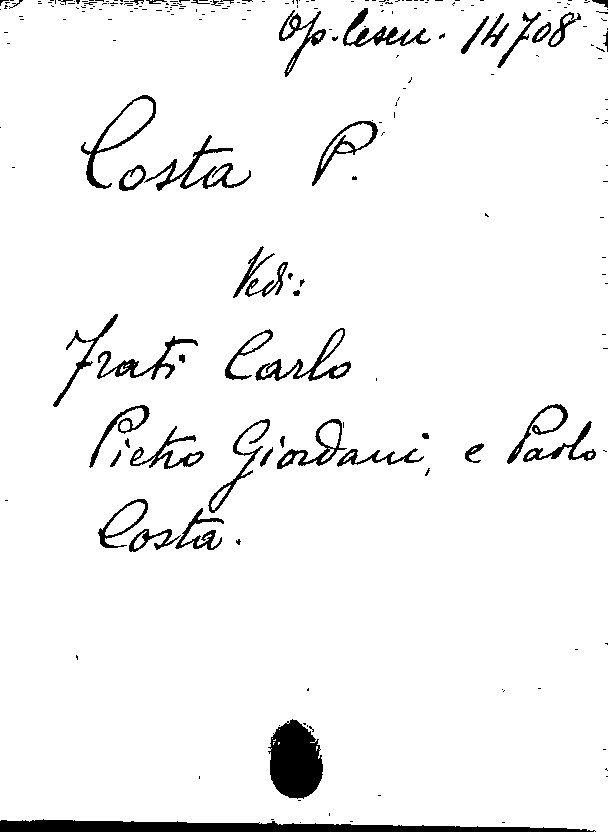 Op. Cesen. 14708
Costa P.
Vedi:
Frati Carlo
Pietro Giordani, e Paolo
Costa.